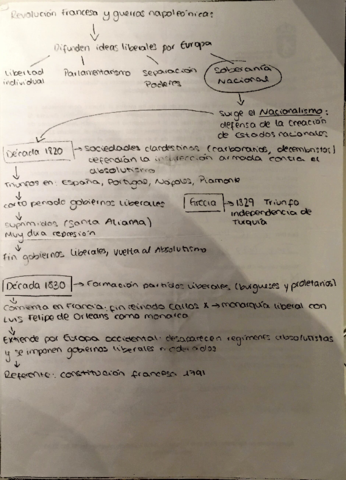 Revolución francesa y guerras napoleónicas:
Difunden ideas liberales por Europa
Libertad individual
Parlamentarismo
Separación Poderes
Soberanía Nacional
Surge el Nacionalismo:
defensa de la creación
de estados nacionales
Década 1820 → Sociedades clandestinas (carbonarios, decembristas)
defendían la insurrección armada contra el
absolutismo
Triunfos en España, Portugal, Nápoles, Piamonte
corto periodo gobiernos liberales
Grecia → 1829 Triunfo
independencia de
Turquía
suprimidos (Santa Alianza)
Muy dura represión
Fin gobiernos liberales, vuelta al Absolutismo
Década 1830 → Formación partidos liberales (burgueses y proletarios)
Comienza en Francia: fin reinado Carlos X → monarquía liberal con
Luis Felipe de Orleans como monarca
Extiende por Europa occidental: desaparecen regímenes absolutistas
y se imponen gobiernos liberales moderados
Referente: constitución francesa 1791